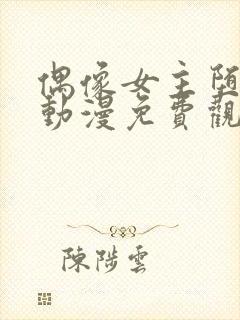 偶像女主堕
動漫免費觀
陳陟雲